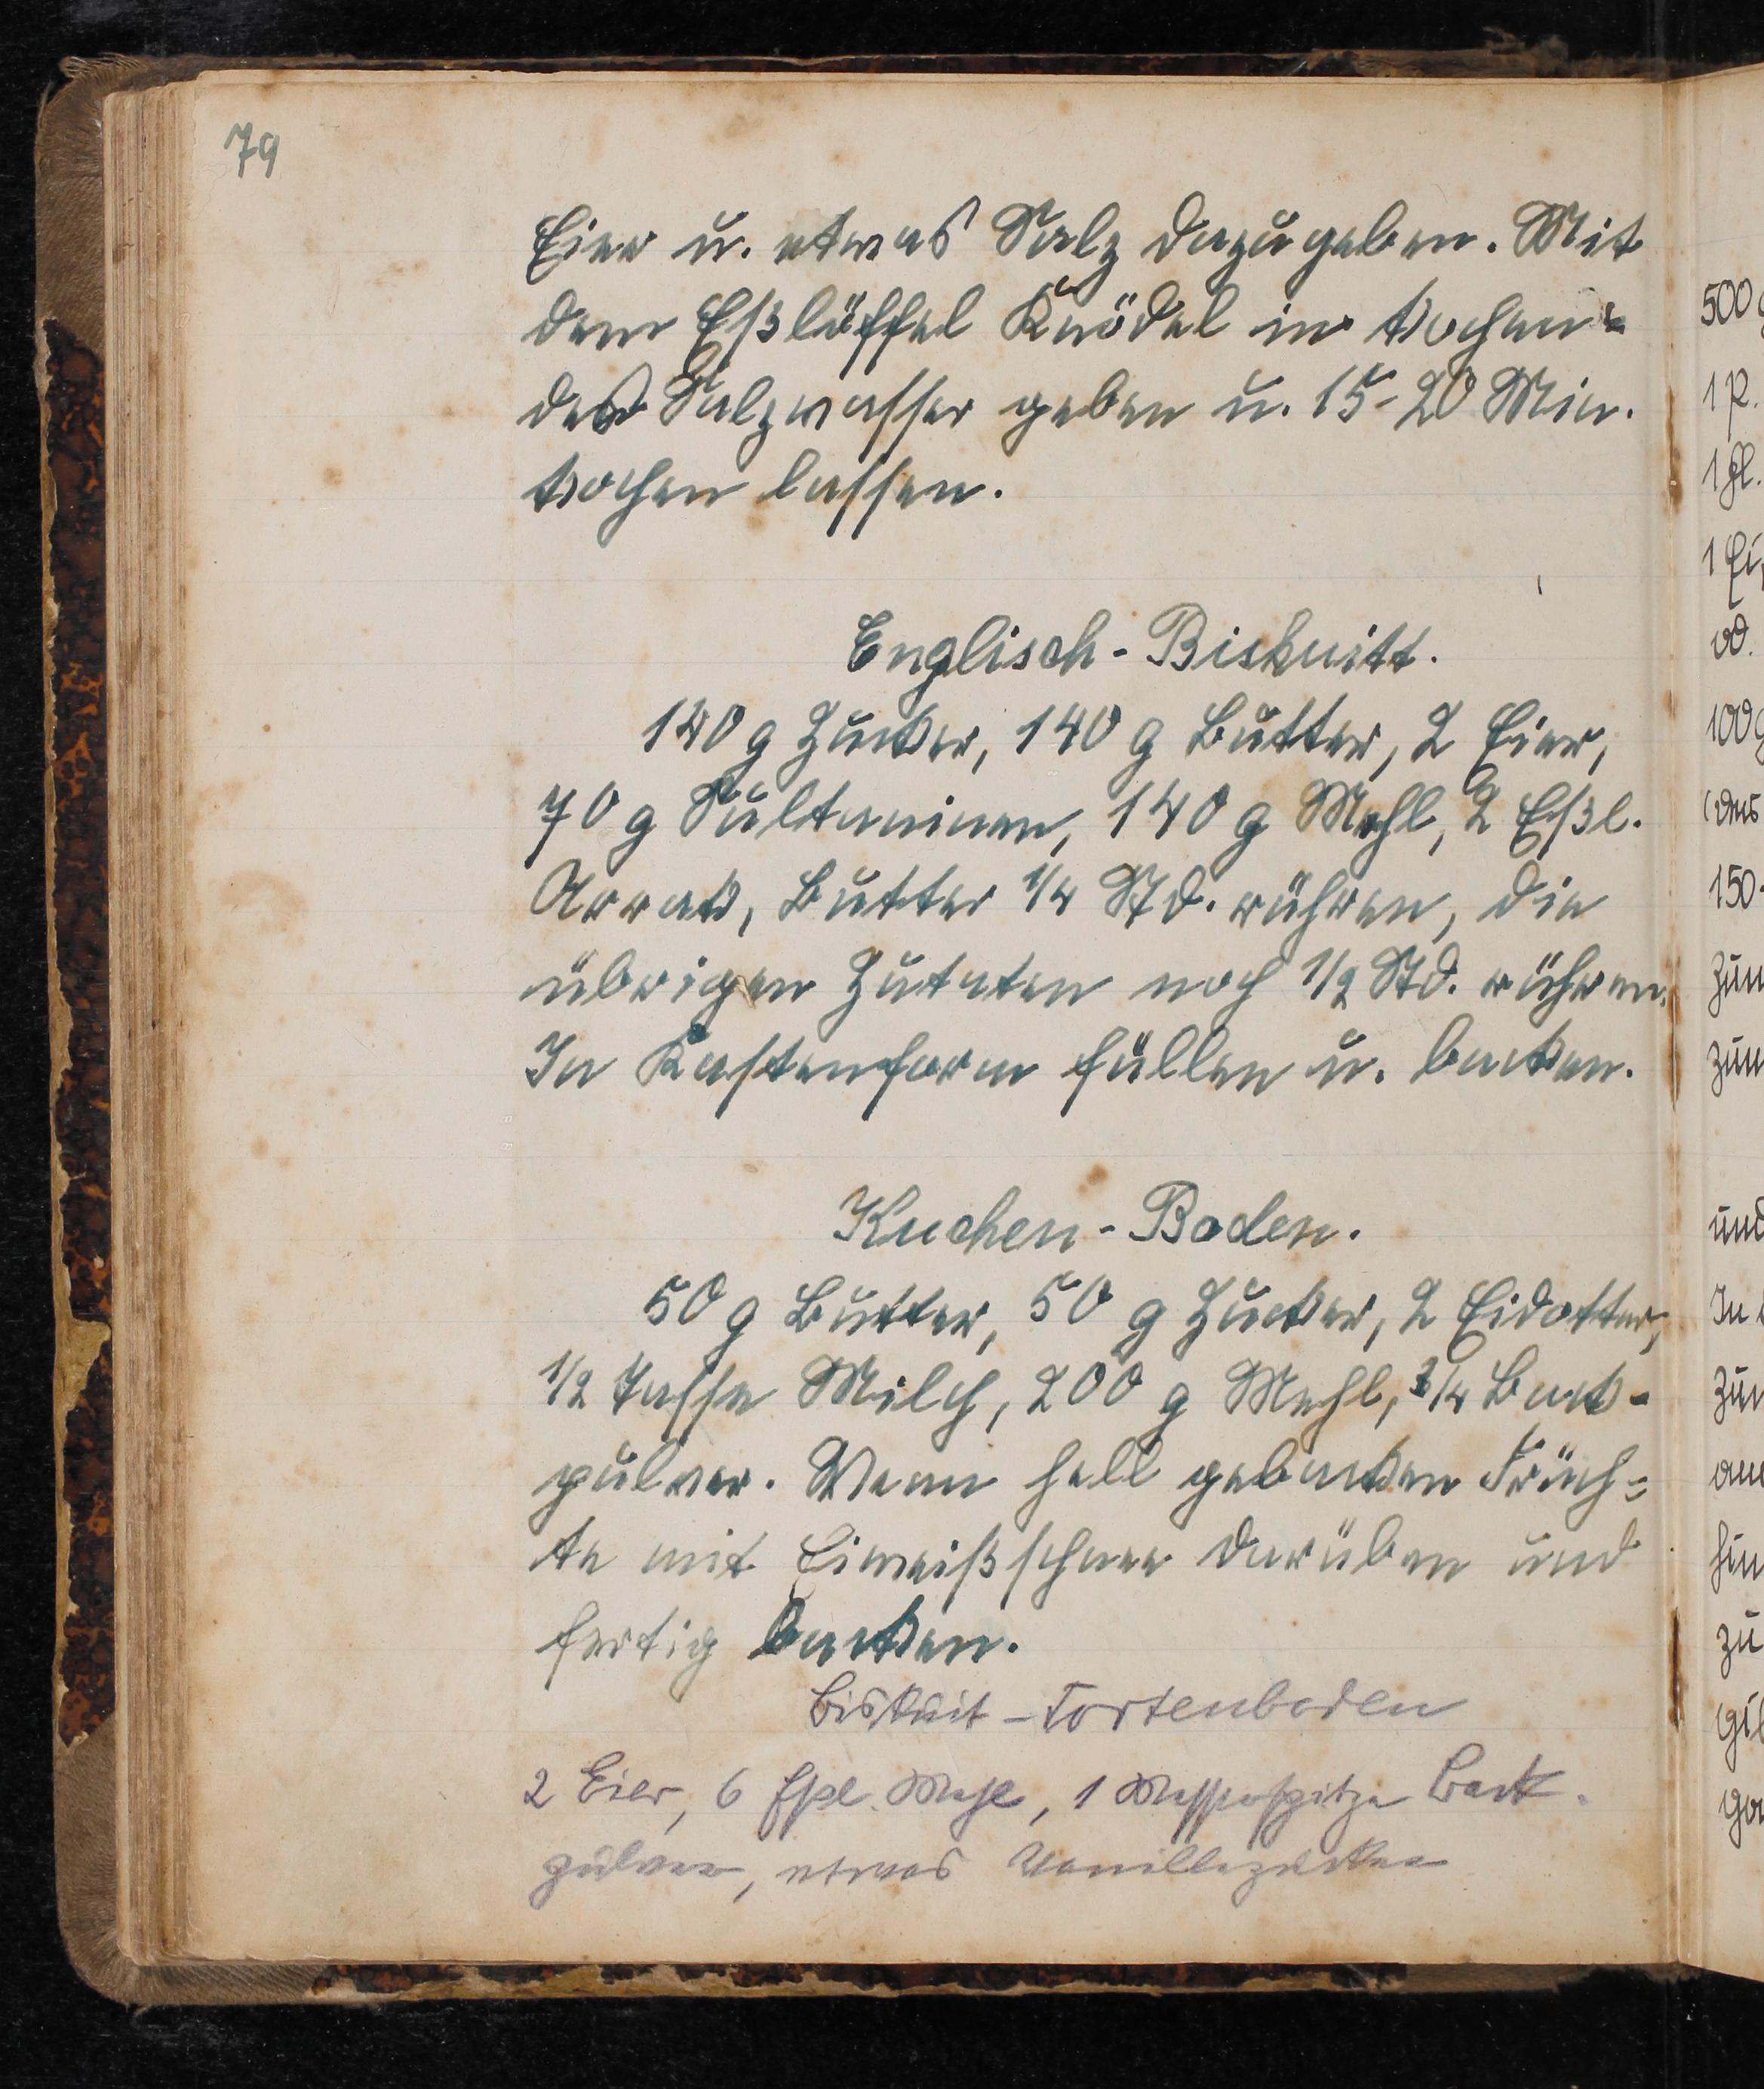 79
Eier u. etwas Salz dazugeben. Mit
dem Eßlöffel Knödel in kochen-
des Salzwasser geben u. 15-20 Min.
kochen lassen.
Englisch-Biskuitt.
140 g Zucker, 140 g Butter, 2 Eier,
70 g Sultaninen, 140 g Mehl, 2 Eßl.
Arrak, Butter 1/4 Std. rühren, die
übrigen Zutaten noch 1/2 Std. rühren.
In Kastenform füllen u. backen.
Kuchen-Boden.
50 g Butter, 50 g Zucker, 2 Eidotter,
1/2 Tasse Milch, 200 g Mehl, 3/4 Back-
pulver. Wenn hell gebacken Früch-
te mit Eiweißschnee darüben und
fertig backen.
Biskuit-Tortenboden
2 Eier, 6 Eßl. Mehl, 1 Messerspitze Back-
pulver, etwas Vanillezucker
500 g
1 P.
1 Fl.
1 Ei,
od.
100 g
(das
150-
Zun
zun
und
In
Zun
hin
zu